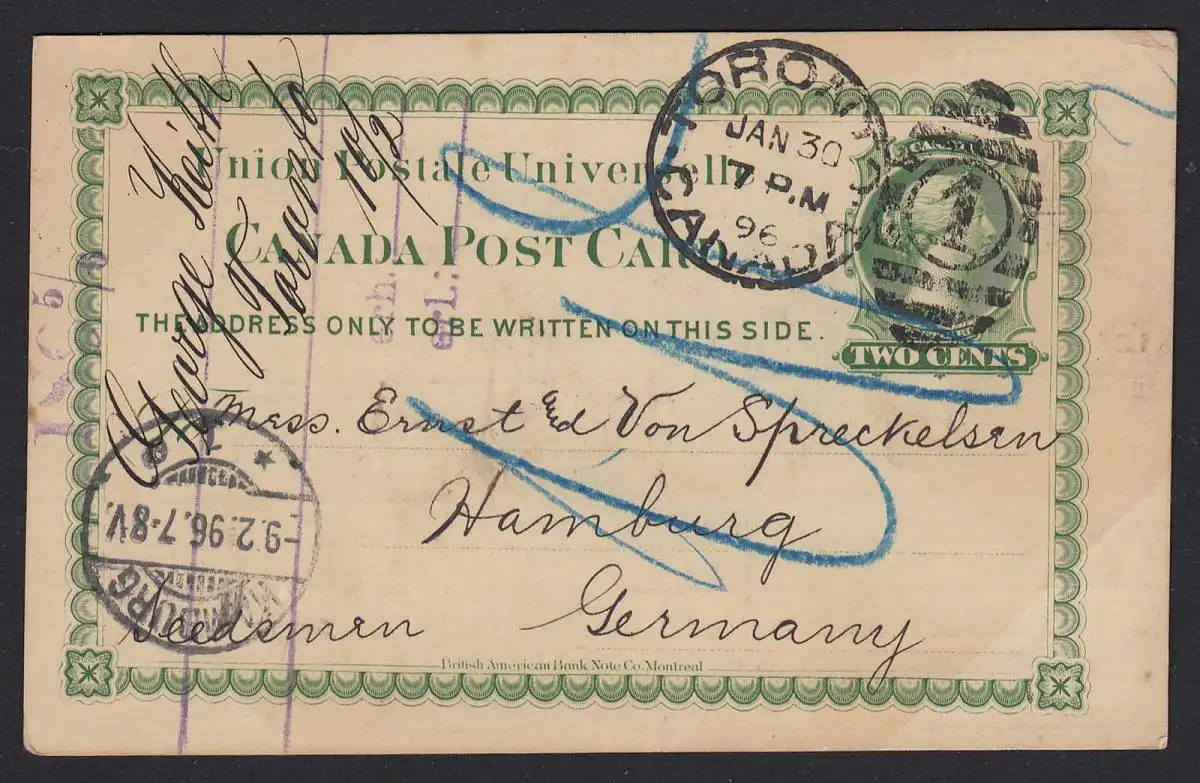 Union Postale Universelle
CANADA POST CARD
THE ADDRESS ONLY TO BE WRITTEN ON THIS SIDE.
TORONTO
CANADA
JAN 30
7 P.M
96
1
TWO CENTS
George Keith
Toronto
10/2
erh.
erl:
Mess. Ernst Ed Von Spreckelsen
Hamburg
Germany
Seedsmen
HAMBURG
-9.2.96.7-8V.
British American Bank Note Co. Montreal